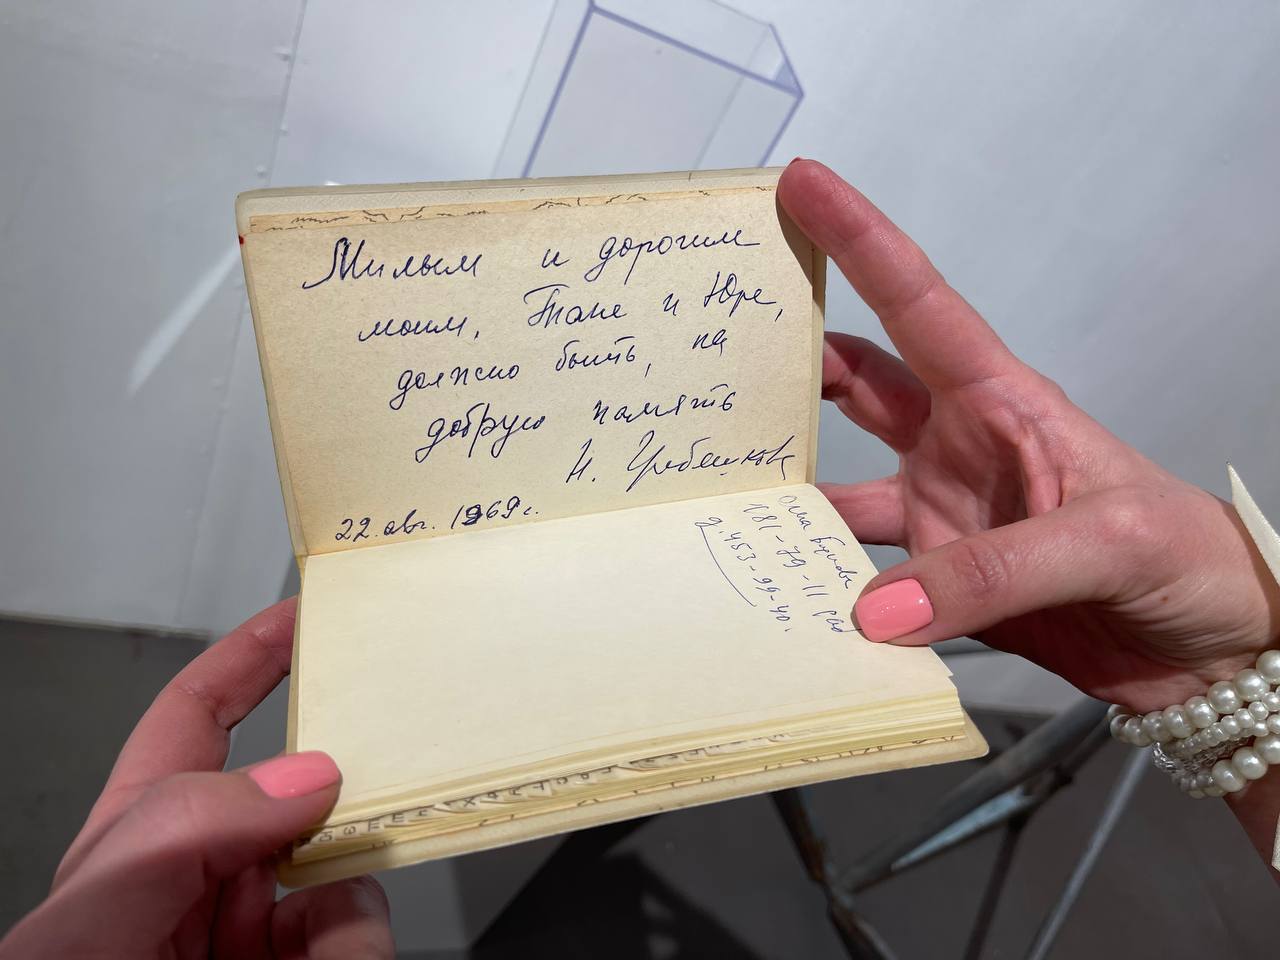 Милым и дорогим
моим, Тане и Юре,
должно быть, на
добрую память
Н. Гребешкова
22. авг. 1969 г.
Ольга
181-79-11 раб
д. 453-99-40.